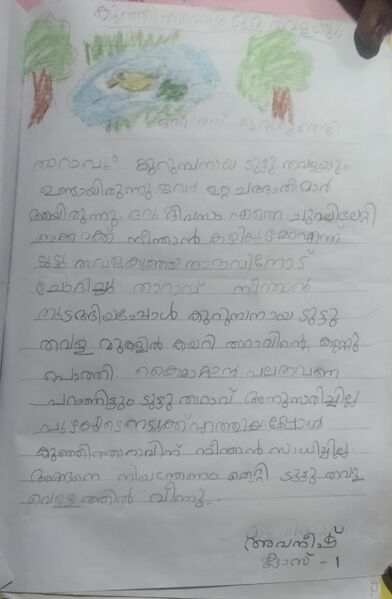 കുഞ്ഞി താറാവും ടുട്ടു തവളയും
ഒരിടത്ത്
താറാവും കുറുമ്പനായ ടുട്ടു തവളയും
ഉണ്ടായിരുന്നു ഇവർ ഉറ്റ ചങ്ങാതിമാർ
ആയിരുന്നു. ഒരു ദിവസം എന്നെ ചുമലിലേറ്റി
നീന്താൻ കഴിയുമോഎന്ന്
ടുട്ടു തവളകുഞ്ഞിതാറാവിനോട്
ചോദിച്ചു താറാവ് നീന്താൻ
തുടങ്ങിയപ്പോൾ കുറുമ്പനായ ടുട്ടു
തവള മുകളിൽ കയറി താറാവിന്റെ കണ്ണു
പൊത്തി കൈമാറ്റാൻ പലതവണ
പറഞ്ഞിട്ടും ടുട്ടു തവള അനുസരിച്ചില്ല
പുഴയുടെനടുക്ക്എത്തിയപ്പോൾ
കുഞ്ഞിത്താറാവിന് നീന്താൻ സാധിച്ചില്ല
അങ്ങനെ നിയന്ത്രണം തെറ്റി ടുട്ടു തവള
വെള്ളത്തിൽ വീണു.
അവനീഷ്
ക്ലാസ് - 1